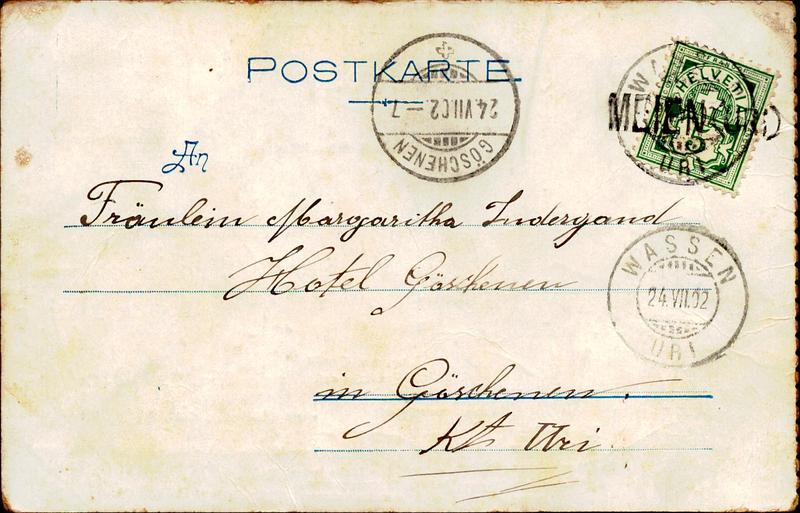 POSTKARTE.
GÖSCHENEN
24.VII.02-7
HELVETIA
5
MEIEN (URI)
WASSEN
URI
An
Fräulein Margaritha Indergand
Hotel Göschenen
WASSEN
24.VII.02
URI
in Göschenen.
Kt Uri.